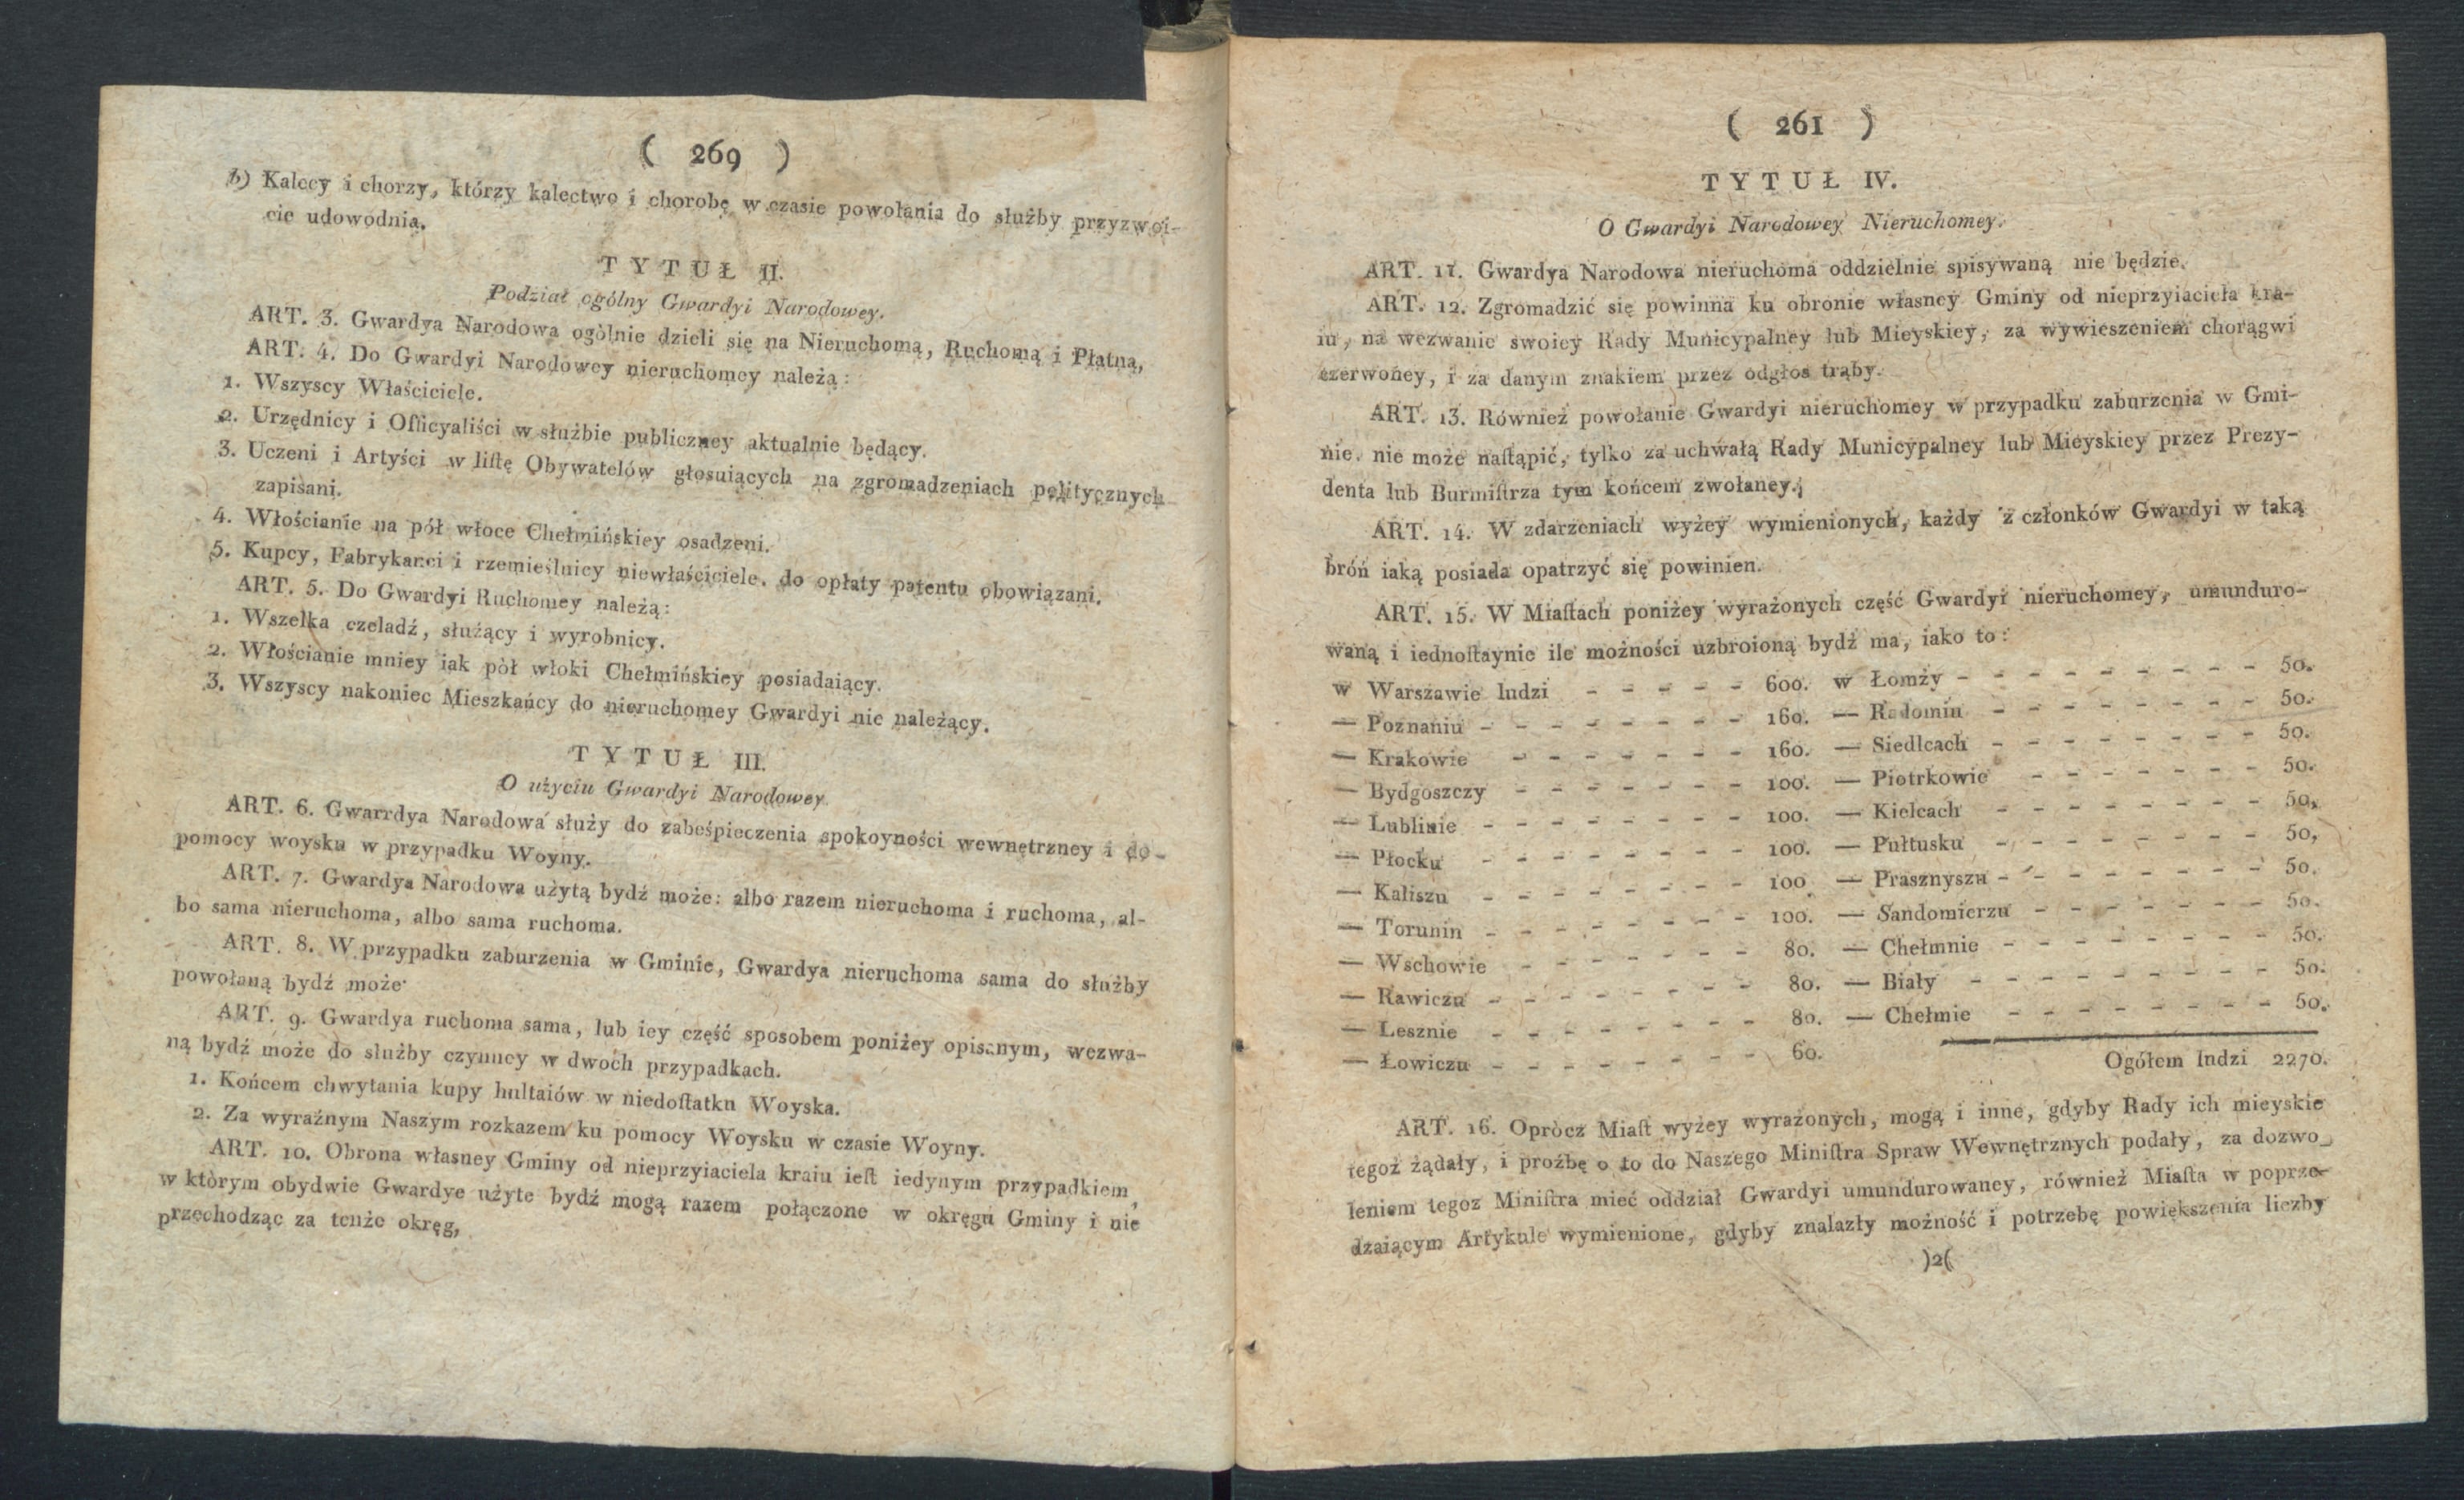 ( 269 )
b) Kalecy i chorzy, którzy kalectwo i chorobę w czasie powołania do służby przyzwoi-
cie udowodnią.
TYTUŁ II.
Podział ogólny Gwardyi Narodowey.
ART. 3. Gwardya Narodowa ogòlnie dzieli się na Nieruchomą, Ruchomą i Płatną,
ART. 4. Do Gwardyi Narodowey nieruchomey należą:
1. Wszyscy Właściciele.
2. Urzędnicy i Officyaliści w służbie publiczney aktualnie będący.
3. Uczeni i Artyści w liſtę Obywatelów głosuiących na zgromadzeniach politycznych
zapisani.
4. Włościanie na pół włoce Chełmińskiey osadzeni.
5. Kupcy, Fabrykanci i rzemieślnicy niewłaściciele, do opłaty patentu obowiązani.
ART. 5. Do Gwardyi Ruchomey należą:
1. Wszelka czeladź, służący i wyrobnicy.
2. Włościanie mniey iak pòł włoki Chełmińskiey posiadaiący.
3. Wszyscy nakoniec Mieszkańcy do nieruchomey Gwardyi nie należący.
TYTUŁ III.
O użyciu Gwardyi Narodowey
ART. 6. Gwarrdya Narodowa służy do zabeśpieczenia spokoyności wewnętrzney i do-
pomocy woysku w przypadku Woyny.
ART. 7. Gwardya Narodowa użytą bydź może: albo razem nieruchoma i ruchoma, al-
bo sama nieruchoma, albo sama ruchoma.
ART. 8. W przypadku zaburzenia w Gminie, Gwardya nieruchoma sama do służby
powołaną bydź może
ART. 9. Gwardya ruchoma sama, lub iey część sposobem poniżey opisanym, wezwa-
ną bydź może do służby czynney w dwoch przypadkach.
1. Końcem chwytania kupy hultaiów w niedoſtatku Woyska.
2. Za wyraźnym Naszym rozkazem ku pomocy Woysku w czasie Woyny.
ART. 10. Obrona własney Gminy od nieprzyiaciela kraiu ieſt iedynym przypadkiem,
w którym obydwie Gwardye użyte bydź mogą razem połączone w okręgu Gminy i nie
przechodząc za tenże okręg,
( 261 )
TYTUŁ IV.
O Gwardyi Narodowey Nieruchomey.
ART. 11. Gwardya Narodowa nieruchoma oddzielnie spisywaną nie będzie.
ART. 12. Zgromadzić się powinna ku obronie własney Gminy od nieprzyiaciela kra-
iu, na wezwanie swoiey Rady Municypalney lub Mieyskiey, za wywieszeniem chorągwi
czerwoney, i za danym znakiem przez odgłos trąby.
ART. 13. Również powołanie Gwardyi nieruchomey w przypadku zaburzenia w Gmi-
nie. nie może naſtąpić, tylko za uchwałą Rady Municypalney lub Mieyskiey przez Prezy-
denta lub Burmiſtrza tym końcem zwołaney.
ART. 14. W zdarzeniach wyżey wymienionych, każdy z członków Gwardyi w taką
bróń iaką posiada opatrzyć się powinien.
ART. 15. W Miaſtach poniżey wyrażonych część Gwardyi nieruchomey, umunduro-
waną i iednoſtaynie ile możności uzbroioną bydź ma, iako to:
w Warszawie ludzi - - - - - 600. w Łomży - - - - - - - - - 50.
— Poznaniu - - - - - - - - 160. — Radomiu - - - - - - - - 50.
— Krakowie - - - - - - - 160. — Siedlcach - - - - - - - - 50.
— Bydgoszczy - - - - - - - 100. — Piotrkowie - - - - - - - 50.
— Lublinie - - - - - - - - 100. — Kielcach - - - - - - - - 50.
— Płocku - - - - - - - - 100. — Pułtusku - - - - - - - - 50,
— Kaliszu - - - - - - - - 100 — Prasznyszu - - - - - - - - 50.
— Toruniu - - - - - - - - 100. — Sandomierzu - - - - - - - 50.
— Wschowie - - - - - - - 80. — Chełmnie - - - - - - - - 50.
— Rawiczu - - - - - - - - 80. — Biały - - - - - - - - - 50.
— Lesznie - - - - - - - - 80. — Chełmie - - - - - - - - 50.
— Łowiczu - - - - - - - - 60.
Ogółem ludzi 2270.
ART. 16. Opròcz Miaſt wyżey wyrażonych, mogą i inne, gdyby Rady ich mieyskie
tegoż żądały, i proźbę o to do Naszego Miniſtra Spraw Wewnętrznych podały, za dozwo-
leniem tegoz Miniſtra mieć oddział Gwardyi umundurowaney, również Miaſta w poprze-
dzaiącym Artykule wymienione, gdyby znalazły możność i potrzebę powiększenia liczby
)2(